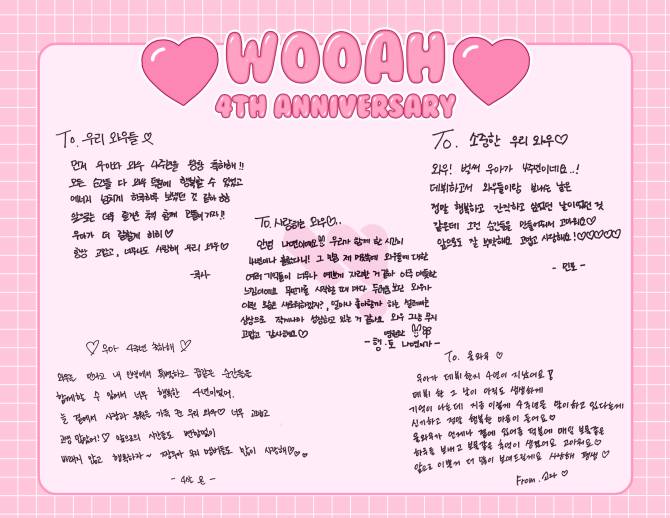 WOOAH
4TH ANNIVERSARY
To. 우리 와우들 ♡
먼저 우아와 와우 4주년을 왕왕 축하해!!
모든 순간들 다 와우 덕분에 행복할 수 있었고
앞으로는 더욱 즐겁게 함께
우아가 더 잘할게 히히 ♡
항상 고맙고, 너무나도 사랑해 우리 와우♡
To. 소중한 우리 와우♡
와우! 벌써 우아가 4주년이네요..!
데뷔하고서 와우들이랑 보내는 날은
정말 행복하고 간직하고 싶었던 날이었던 것
같은데 그런 순간들을 만들어줘서 고마워요♡
앞으로도 잘 부탁해요 고맙고 사랑해요!♡♡♡♡♡
- 민서 -
To. 사랑하는 와우♡..
안녕 나연이에요 우리가 함께 한 시간이
4년이나 흘렀다니! 그 만큼 제 마음속에 와우들에 대한
여러 기억들이 너무나 예쁘게 자리한 것 같아 아주 따뜻한
느낌이에요 무언가를 시작할 때 마다
고맙고 감사해요♡
♡ 우아 4주년 축하해 ♡
와우를 만나고 내 인생에서 특별하고 꿈같은 순간들을
함께할 수 있어서 너무 행복한 4년이었어.
늘 곁에서 사랑과 응원을 가득 준 우리 와우♡ 너무 고맙고
고생 많았어!♡ 앞으로의 시간들도 변함없이
바래지 않고 행복하자~ 우리 많이 사랑해♡
To. 울와우 ♡
우아가 데뷔한지 4년이 지났어요
데뷔 한 그 날이 아직도 생생하게
기억이 나는데 지금 이렇게 4주년을 맞이하고 있다는게
신기하고 정말 행복한 마음이 들어요♡
울와우가 언제나 곁에 있어준 덕분에 매일 보물같은
하루를 보내고 보물같은 추억이 생겼어요 고마워요♡
앞으로 이쁜거 더 많이 보여드릴게요 사랑해 평생 ♡
From. 소라 ♡